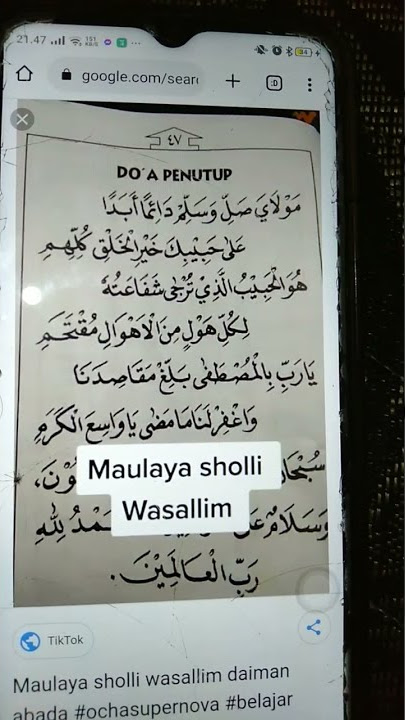 21.47
151 KB/S
34
google.com/sear
:D
٤٧
DO'A PENUTUP
مَوْلَايَ صَلِّ وَسَلِّمْ دَائِمًا أَبَدًا
عَلَى حَبِيْبِكَ خَيْرِ الْخَلْقِ كُلِّهِمِ
هُوَ الْحَبِيْبُ الَّذِيْ تُرْجَى شَفَاعَتُهُ
لِكُلِّ هَوْلٍ مِنَ الْاَهْوَالِ مُقْتَحَمِ
يَارَبِّ بِالْمُصْطَفَى بَلِّغْ مَقَاصِدَنَا
وَاغْفِرْ لَنَا مَا مَضَى يَا وَاسِعَ الْكَرَمِ
Maulaya sholli
Wasallim
رَبِّ الْعَالَمِيْنَ.
TikTok
Maulaya sholli wasallim daiman
abada #ochasupernova #belajar